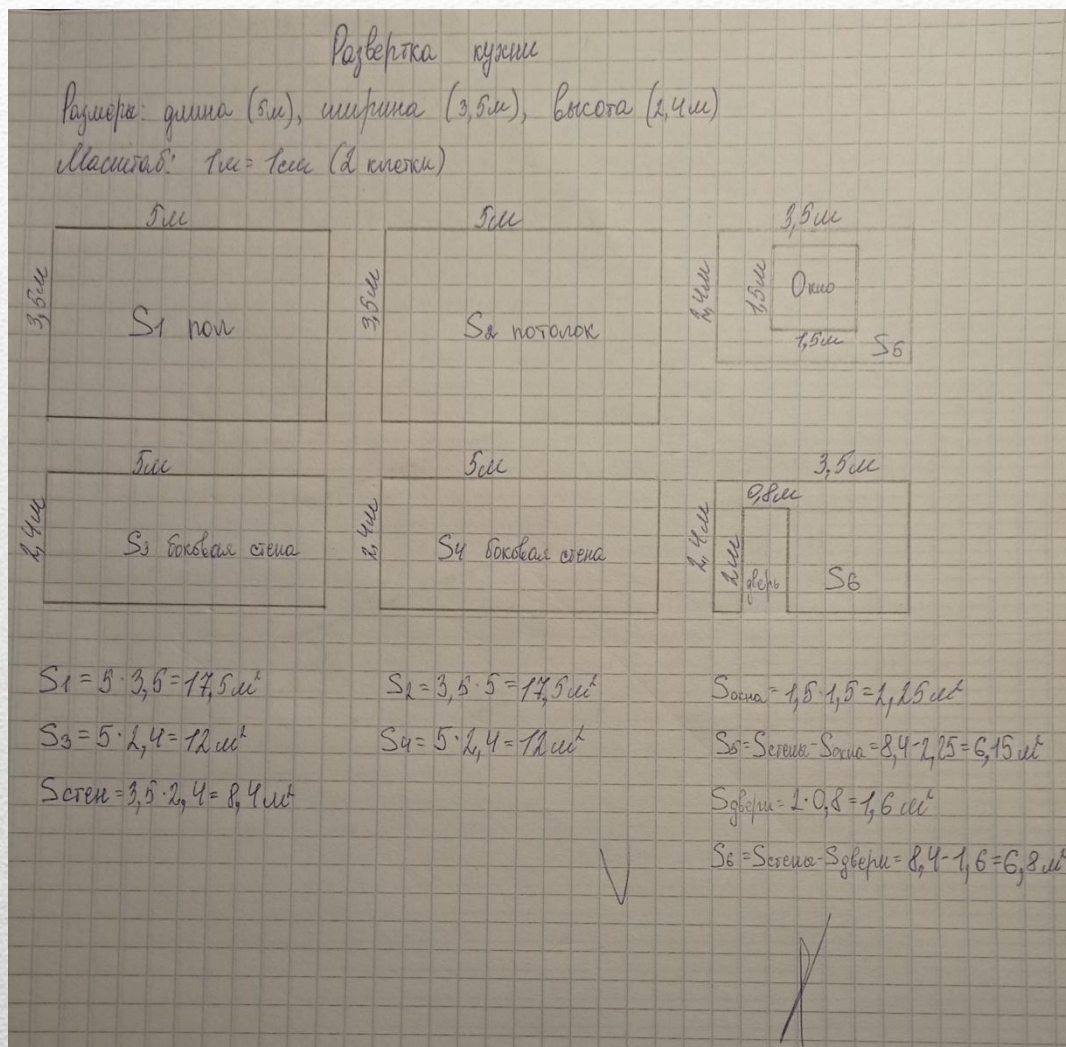 Развертка кухни
Размеры: длина (5м), ширина (3,5м), высота (2,4м)
Масштаб: 1м = 1см (2 клетки)
5м
3,5м
S1 пол
5м
3,5м
S2 потолок
3,5м
2,4м
1,5м
Окно
1,5м
S6
5м
2,4м
S3 боковая стена
5м
2,4м
S4 боковая стена
3,5м
0,8м
2,4м
2м
дверь
S6
S1 = 5·3,5 = 17,5м²
S3 = 5·2,4 = 12м²
Sстен = 3,5·2,4 = 8,4м²
S2 = 3,5·5 = 17,5м²
S4 = 5·2,4 = 12м²
Sокна = 1,5·1,5 = 2,25м²
S5 = Sстены - Sокна = 8,4 - 2,25 = 6,15м²
Sдвери = 2·0,8 = 1,6м²
S6 = Sстены - Sдвери = 8,4 - 1,6 = 6,8м²